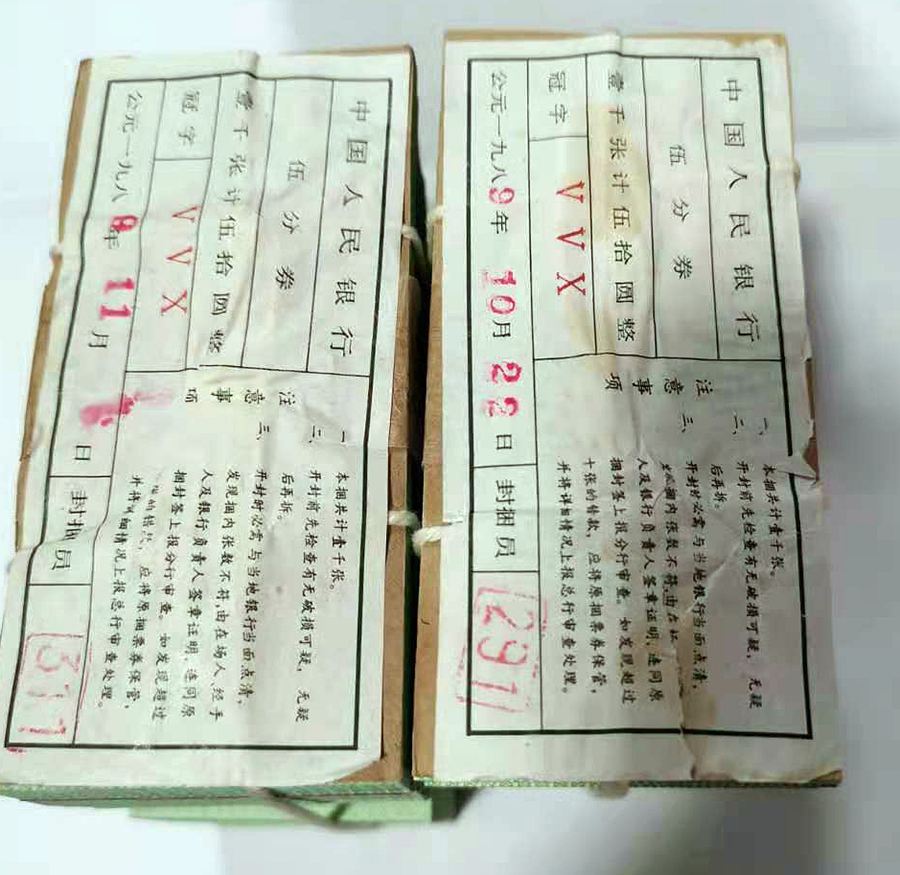 中国人民银行
伍分券
壹千张计伍拾圆整
冠字 VVX
公元一九八 年 11月 日 封捆员
注意事项
一、本捆共计壹千张。
二、开封前先检查有无破损可疑，无疑
后再拆。
三、开封时必需与当地银行当面点清，
发现捆内张数不符，由在场人、经手
人及银行负责人签章证明，连同原
捆封签上报分行审查。如发现超过
的错款，应将原捆票券保管，
并将详细情况上报总行审查处理。
中国人民银行
伍分券
壹千张计伍拾圆整
冠字 VVX
公元一九八9年 10月 22日 封捆员 291
注意事项
一、本捆共计壹千张。
二、开封前先检查有无破损可疑，无疑
后再拆。
三、开封时必需与当地银行当面点清，
捆内张数不符，由在
人及银行负责人签章证明，连同原
捆封签上报分行审查。如发现超过
十张的错款，应将原捆票券保管，
并将详细情况上报总行审查处理。